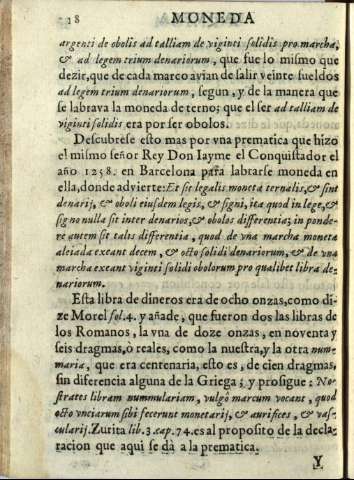 18 MONEDA
argenti de obolis ad talliam de viginti solidis pro marcha,
& ad legem trium denariorum, que fue lo mismo que
dezir, que de cada marco avian de salir veinte sueldos
ad legem trium denariorum, segun, y de la manera que
se labrava la moneda de terno; que el ser ad talliam de
viginti solidis era por ser obolos.
Descubrese esto mas por vna prematica que hizo
el mismo señor Rey Don Iayme el Conquistador el
año 1258. en Barcelona para labrarse moneda en
ella, donde advierte: Et sit legalis moneta ternalis, & sint
denarij, & oboli eiusdem legis, & signi, ita quod in lege, &
signo nulla sit inter denarios, & obolos differentia; in ponde-
re autem sit talis differentia, quod de vna marcha moneta
aleiada exeant decem, & octo solidi denariorum, & de vna
marcha exeant viginti solidi obolorum pro qualibet libra de-
nariorum.
Esta libra de dineros era de ocho onzas, como di-
ze Morel fol. 4. y añade, que fueron dos las libras de
los Romanos, la vna de doze onzas, en noventa y
seis dragmas, ò reales, como la nuestra, y la otra num-
maria, que era centenaria, esto es, de cien dragmas,
sin diferencia alguna de la Griega; y prosigue: No-
strates libram nummulariam, vulgò marcum vocant, quod
octo vnciarum sibi fecerunt monetarij, & aurifices, & vas-
cularij. Zurita lib. 3. cap. 74. es al proposito de la decla-
racion que aqui se dà a la prematica.
Y